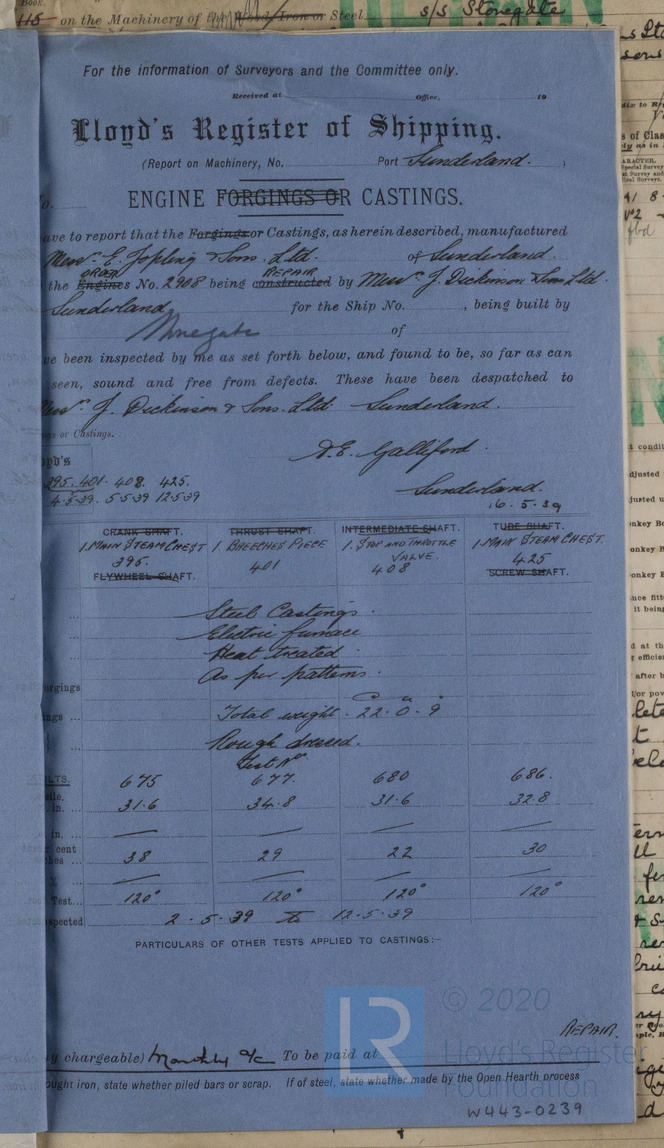 115 on the Machinery of the Wood, Iron or Steel s/s Stonegate
For the information of Surveyors and the Committee only.
Received at Office, 19
Lloyd's Register of Shipping.
(Report on Machinery, No. Port Sunderland.
No.
ENGINE FORGINGS OR CASTINGS.
ave to report that the Forgings or Castings, as herein described, manufactured
Messrs. E. Jopling & Sons. Ltd. of Sunderland.
ORDER REPAIR
the Engines No. 2908 being constructed by Messrs. J. Dickinson & Sons Ltd.
Sunderland for the Ship No. , being built by
Stonegate of
ve been inspected by me as set forth below, and found to be, so far as can
seen, sound and free from defects. These have been despatched to
Messrs. J. Dickinson & Sons. Ltd. Sunderland.
gs or Castings.
oyd's
395. 401. 408. 425.
4-5-39. 5-5-39 12-5-39
A.E. Galliford
Sunderland.
16. 5. 39
CRANK SHAFT. THRUST SHAFT. INTERMEDIATE SHAFT. TUBE SHAFT.
1. MAIN STEAM CHEST 1. BREECHES PIECE 1. STOP AND THROTTLE VALVE. 1. MAIN STEAM CHEST.
395. 401 408 425
FLYWHEEL SHAFT. SCREW SHAFT.
Steel Castings.
Electric furnace
Heat treated.
As per patterns.
orgings
C Q
ngs ... Total weight. 22. 0. 9
Rough dressed.
Test No
ULTS. 675 677. 680 686.
in. ... 31.6 34.8 31.6 32.8
in. ...
cent
ches ... 38 29 22 30
Test... 120° 120° 120° 120°
nspected 2. 5. 39 to 12. 5. 39
PARTICULARS OF OTHER TESTS APPLIED TO CASTINGS:-
© 2020
LR
REPAIR.
y chargeable) Monthly a/c To be paid at
Lloyd's Register
Foundation
ought iron, state whether piled bars or scrap. If of steel, state whether made by the Open Hearth process
W443-0239